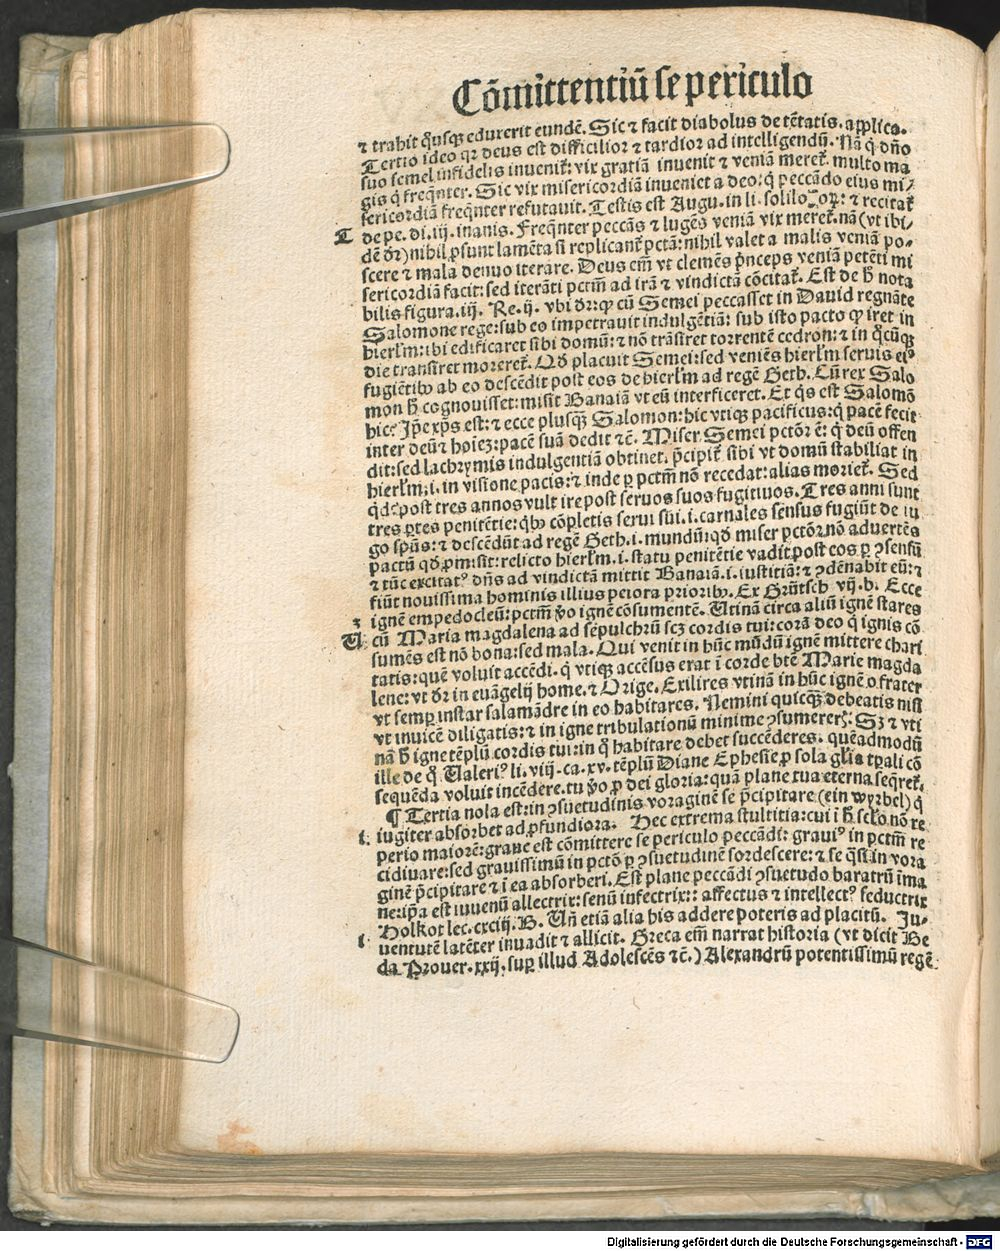 Cōmittentiū se periculo
⁊ trahit q̈usq; eduxerit eundē. Sic ⁊ facit diabolus de tētatis. applica.
Tertio ideo qꝛ deus est difficilior ⁊ tardior ad intelligendū. Nā q̇ dño
suo semel infidelis inuenit᷑: vix gratiā inuenit ⁊ veniā meret᷑. multo ma
gis q̇ freq̄nter. Sic vix misericordiā inueniet a deo: q̇ peccādo eius mi/
sericordiā freq̄nter refutauit. Testis est Augu. in li. soliloꝙoꝝ: ⁊ recitat᷑
T de pe. di. iij. inanis. Freq̄nter peccās ⁊ lugēs veniā vix meret᷑. nā (vt ibi-
dē dꝛ) nihil ꝓsunt lamēta si replicant᷑ pctā: nihil valet a malis veniā po-
scere ⁊ mala denuo iterare. Deus em̄ vt clemēs p̄nceps veniā petēti mi
sericordiā facit: sed iterāti pctm̄ ad irā ⁊ vindictā cōcitat᷑. Est de h̄ nota
bilis figura. iij. Re. ij. vbi dꝛ: ꝙ cū Semei peccasset in Dauid regnāte
Salomone rege: sub eo impetrauit indulgētiā: sub isto pacto ꝙ iret in
hierl̄m: ibi edificaret sibi domū: ⁊ nō trāsiret torrentē cedron: ⁊ in q̄cūq;
die transiret moreret᷑. Qd̄ placuit Semei: sed veniēs hierl̄m seruis eiꝰ
fugiētibꝰ ab eo descēdit post eos de hierl̄m ad regē Geth. Cū rex Salo
mon h̄ cognouisset: misit Banaiā vt eū interficeret. Et q̇s est Salomō
hic? Ip̄e xp̄s est: ⁊ ecce plusq̄ Salomon: hic vtiq; pacificus: q̇ pacē fecit
inter deū ⁊ hoīez: pacē suā dedit ⁊c̄. Miser Semei pctōr ē: q̇ deū offen
dit: sed lachrymis indulgentiā obtinet. p̄cipit᷑ sibi vt domū stabiliat in
hierl̄m; i. in visione pacis: ⁊ inde ꝑ pctm̄ nō recedat: alias moriet᷑. Sed
post tres annos vult ire post seruos suos fugitiuos. Tres anni sunt
tres ꝑtes penitētie: qbꝰ cōpletis serui sui. i. carnales sensus fugiūt de iu
go spūs: ⁊ descēdūt ad regē Geth. i. mundū: qd̄ miser pctōr nō aduertēs
pactū qd̄ ꝓmisit: relicto hierl̄m. i. statu penitētie vadit post eos ꝑ ꝯsensū
⁊ tūc excitatꝰ dn̄s ad vindictā mittit Banaiā. i. iustitiā: ⁊ ꝯdēnabit eū: ⁊
fiūt nouissima hominis illius peiora prioribꝰ. Ex Grūtsch vij. b. Ecce
3 ignē empedocleū: pctm̄ ꝟo ignē cōsumentē. Utinā circa aliū ignē stares
U cū Maria magdalena ad sepulchrū scz cordis tui: corā deo q̇ ignis cō
sumēs est nō bona: sed mala. Qui venit in hūc mūdū ignē mittere chari
tatis: quē voluit accēdi. q̇ vtiq; accēsus erat ī corde btē Marie magda
lene: vt dꝛ in euāgelij home. ⁊ Orige. Exilires vtinā in hūc ignē o frater
vt semꝑ instar salamādre in eo habitares. Nemini quicq̄ debeatis nisi
vt inuicē diligatis: ⁊ in igne tribulationū minime ꝯsumererꝭ. Sz ⁊ vti
nā h̄ igne tēplū cordis tui: in q̄ habitare debet succēderes. quēadmodū
ille de q̄ Ualeriꝰ li. viij. ca. xv. tēplū Diane Ephesie ꝓ sola gl̄ia tꝑali cō
sequēda voluit incēdere. tu ꝟo ꝓ dei gloria: quā plane tua eterna seq̄ret᷑.
¶ Tertia nola est: in ꝯsuetudinis voraginē se p̄cipitare (ein wyrbel) q̇
1. iugiter absorbet ad ꝓfundiora. Hec extrema stultitia: cui ī h̄ sclo. nō re
perio maiorē: graue est cōmittere se periculo peccādi: grauiꝰ in pctm̄ re
cidiuare: sed grauissimū in pctō ꝑ ꝯsuetudinē sordescere: ⁊ se q̄si in vora
ginē p̄cipitare ⁊ ī ea absorberi. Est plane peccādi ꝯsuetudo baratrū īma
ne: ip̄a est iuuenū allectrix: senū infectrix:: affectus ⁊ intellectꝰ seductrix
Holkot lec. cxciij. B. Un̄ etiā alia his addere poteris ad placitū. Ju-
1 uentutē latēter inuadit ⁊ allicit. Greca em̄ narrat historia (vt dicit Be
da Prouer. xxij. suꝑ illud Adolescēs ⁊c̄.) Alexandrū potentissimū regē
Digitalisierung gefördert durch die Deutsche Forschungsgemeinschaft - DFG